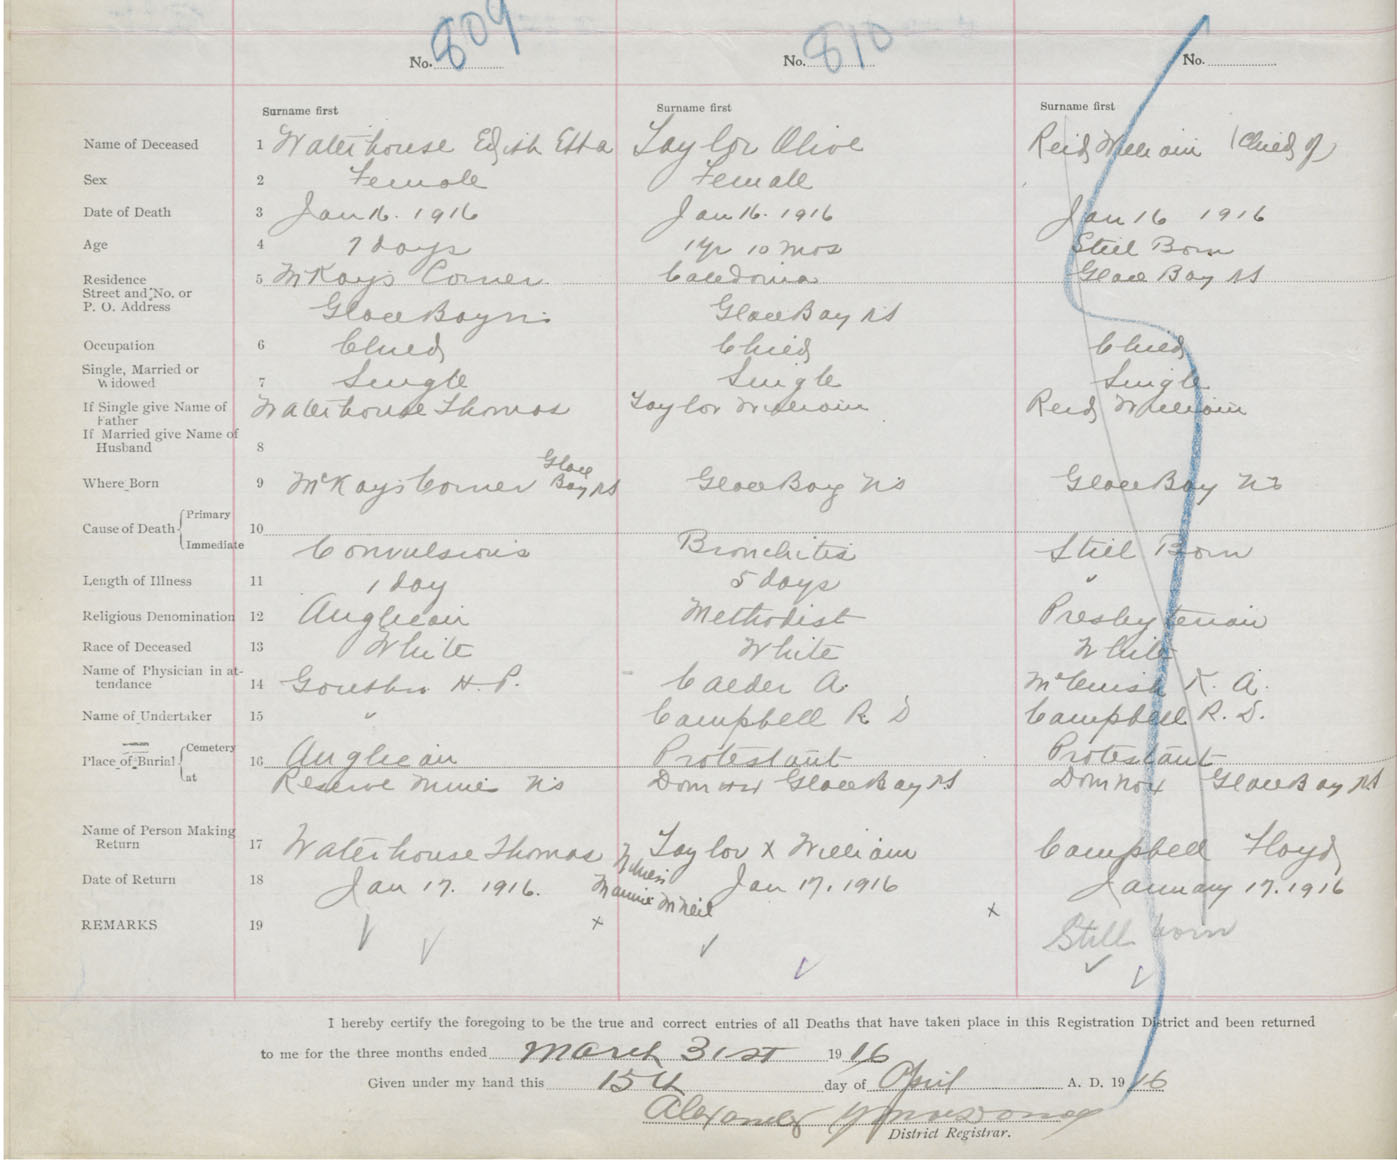 No. 809 No. 810 No.
Surname first Surname first Surname first
Name of Deceased 1 Waterhouse Edith Etta Taylor Olive Reid William (Child of)
Sex 2 Female Female
Date of Death 3 Jan 16. 1916 Jan 16. 1916 Jan 16 1916
Age 4 7 days 1 yr 10 mos Still Born
Residence 5 McKays Corner Caledonia Glace Bay NS
Street and No. or
P. O. Address Glace Bay NS Glace Bay NS
Occupation 6 Child Child Child
Single, Married or
Widowed 7 Single Single Single
If Single give Name of Waterhouse Thomas Taylor William Reid William
Father
If Married give Name of
Husband 8
Where Born 9 McKays Corner Glace Bay NS Glace Bay NS Glace Bay NS
Cause of Death Primary 10
Immediate Convulsions Bronchitis Still Born
Length of Illness 11 1 day 5 days "
Religious Denomination 12 Anglican Methodist Presbyterian
Race of Deceased 13 White White White
Name of Physician in at-
tendance 14 H. P. Calder A. K. A.
Name of Undertaker 15 " Campbell R D Campbell R. D.
Place of Burial Cemetery 16 Anglican Protestant Protestant
at Reserve Mines NS Dom No Glace Bay NS Dom No Glace Bay NS
Name of Person Making
Return 17 Waterhouse Thomas Taylor X William Campbell Floyd
Witness
Mamie McNeil
Date of Return 18 Jan 17. 1916. Jan 17, 1916 January 17. 1916
REMARKS 19 x x Still born
I hereby certify the foregoing to be the true and correct entries of all Deaths that have taken place in this Registration District and been returned
to me for the three months ended March 31st 1916
Given under my hand this 15th day of April A. D. 1916
Alexander
District Registrar.